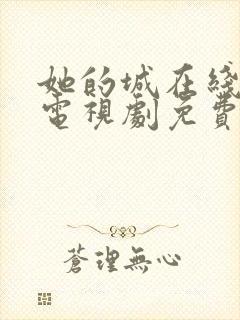 她的城在綫
電視劇免費
蒼理無心